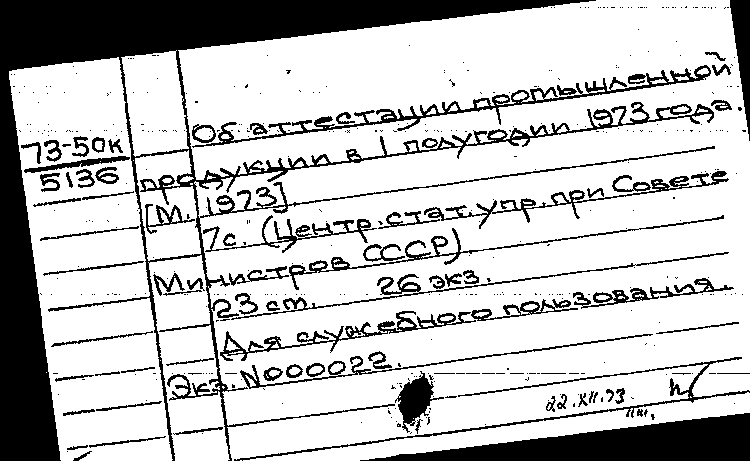 Об аттестации промышленной
73-50к
5136
продукции в I полугодии 1973 года.
[М. 1973].
7с. (Центр.стат.упр.при Совете
Министров СССР)
23 ст. 26 экз.
Для служебного пользования.
Экз.N000022.
22.XII.73